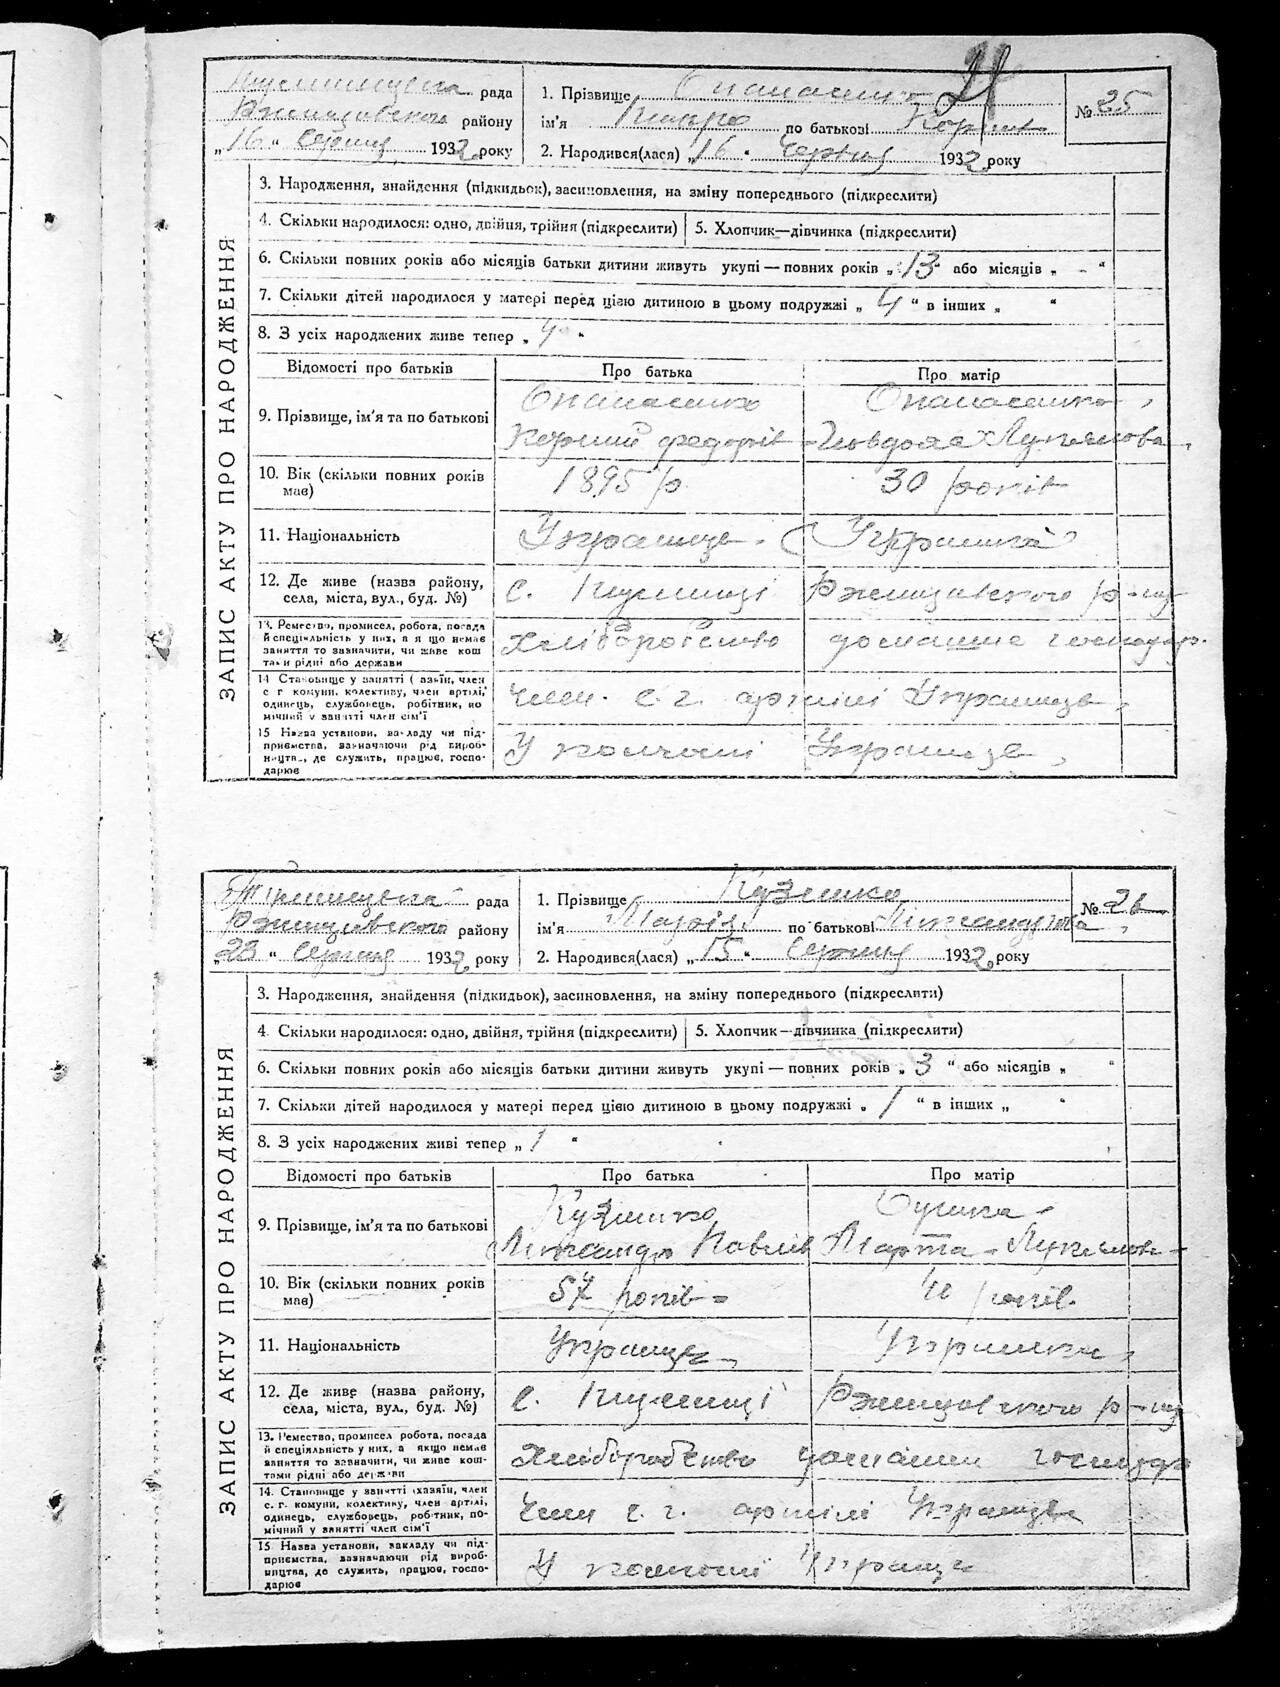 21
рада
Ржищівського району
„16“ Серпня 1932 року
1. Прізвище Опанасенко
ім'я по батькові
2. Народився(лася) „16“ Серпня 1932 року
№ 25
ЗАПИС АКТУ ПРО НАРОДЖЕННЯ
3. Народження, знайдення (підкидьок), засиновлення, на зміну попереднього (підкреслити)
4. Скільки народилося: одно, двійня, трійня (підкреслити) 5. Хлопчик—дівчинка (підкреслити)
6. Скільки повних років або місяців батьки дитини живуть укупі — повних років „13“ або місяців „ - “
7. Скільки дітей народилося у матері перед цією дитиною в цьому подружжі „ 4 “ в інших „ “
8. З усіх народжених живе тепер „ 4 “
Відомості про батьків Про батька Про матір
9. Прізвище, ім'я та по батькові
Опанасенко Опанасенко
Корній Федорів Лукянова
10. Вік (скільки повних років має)
1895 р. 30 років
11. Національність
Українець Українка
12. Де живе (назва району, села, міста, вул., буд. №)
с. Ржищівського р-ну
13. Ремество, промисел, робота, посада й спеціяльність у них, а якщо немає заняття то зазначити, чи живе коштами рідні або держави
Хліборобство домашнє господар.
14. Становище у занятті (хазяїн, член с. г. комуни, колективу, член артілі, одинець, службовець, робітник, помічний у занятті член сім'ї
Член с. г. артілі Українець
15. Назва установи, закладу чи підприємства, зазначаючи рід виробництва, де служить, працює, господарює
У колгоспі Українець
рада
Ржищівського району
„23“ Серпня 1932 року
1. Прізвище Кузменко
ім'я Марія по батькові Олександрова
2. Народився(лася) „15“ Серпня 1932 року
№ 26
ЗАПИС АКТУ ПРО НАРОДЖЕННЯ
3. Народження, знайдення (підкидьок), засиновлення, на зміну попереднього (підкреслити)
4. Скільки народилося: одно, двійня, трійня (підкреслити) 5. Хлопчик—дівчинка (підкреслити)
6. Скільки повних років або місяців батьки дитини живуть укупі — повних років „ 3 “ або місяців „ “
7. Скільки дітей народилося у матері перед цією дитиною в цьому подружжі „ 1 “ в інших „ “
8. З усіх народжених живі тепер „ 1 “
Відомості про батьків Про батька Про матір
9. Прізвище, ім'я та по батькові
Кузменко
Олександр Павлів Марта Лукянова
10. Вік (скільки повних років має)
років років
11. Національність
Українець Українка
12. Де живе (назва району, села, міста, вул., буд. №)
с. Ржищівського р-ну
13. Ремество, промисел, робота, посада й спеціяльність у них, а якщо немає заняття то зазначити, чи живе коштами рідні або держави
Хліборобство домашнє господар
14. Становище у занятті (хазяїн, член с. г. комуни, колективу, член артілі, одинець, службовець, робітник, помічний у занятті член сім'ї
Член с. г. артілі Українець
15. Назва установи, закладу чи підприємства, зазначаючи рід виробництва, де служить, працює, господарює
У колгоспі Українець